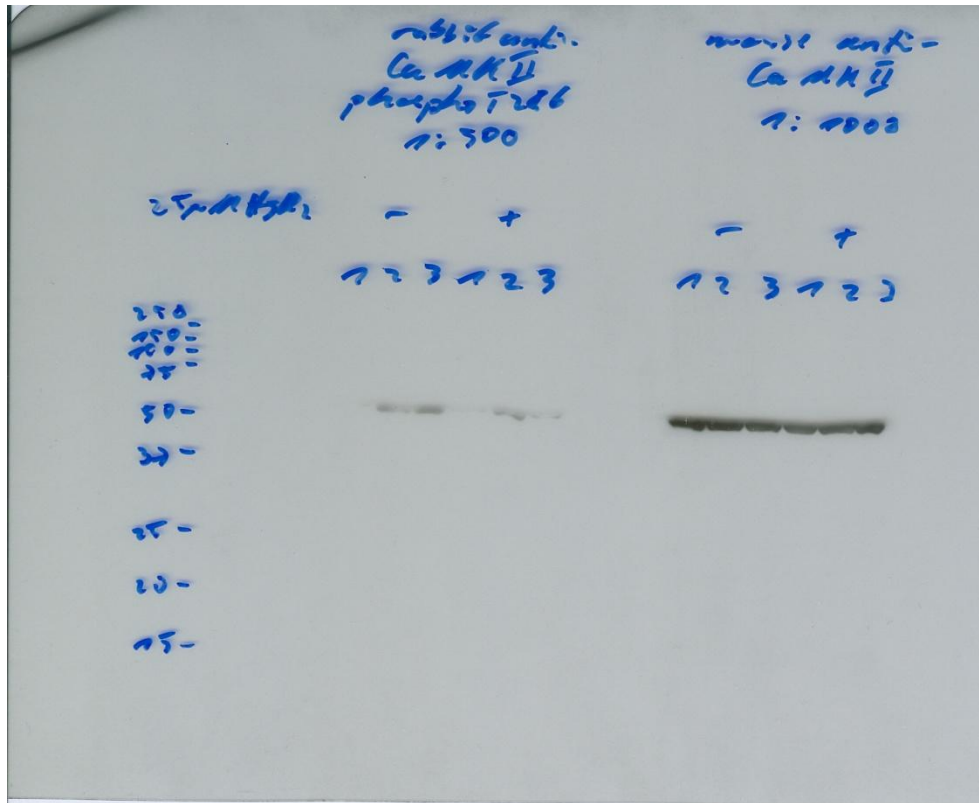 rabbit anti-
CaMKII
phospho T286
1:500
mouse anti-
CaMKII
1:1000
25µM
- +
- +
1 2 3 1 2 3
1 2 3 1 2 3
250
150-
100-
75-
50-
37-
25-
20-
15-